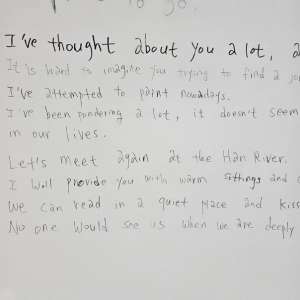 to go.
I've thought about you a lot,
It is hard to imagine you trying to find a
I've attempted to paint nowadays.
I've been pondering a lot, it doesn't seem
in our lives.
Let's meet again at the Han River.
I will provide you with warm
We can read in a quiet place and kiss
No one would see us when we are deeply